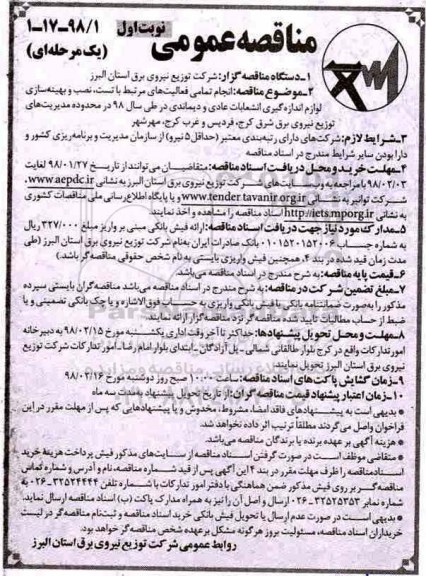 مناقصه عمومی
نوبت اول
۱-۱۷-۹۸/۱
(یک مرحله‌ای)
۱-دستگاه مناقصه گزار: شرکت توزیع نیروی برق استان البرز
۲-موضوع مناقصه: انجام تمامی فعالیت‌های مرتبط با تست، نصب و بهینه‌سازی
لوازم اندازه‌گیری انشعابات عادی و دیماندی در طی سال ۹۸ در محدوده مدیریت‌های
توزیع نیروی برق شرق کرج، فردیس و غرب کرج، مهرشهر
۳-شرایط لازم: شرکت‌های دارای رتبه‌بندی معتبر (حداقل ۵ نیرو) از سازمان مدیریت و برنامه‌ریزی کشور و
دارا بودن سایر شرایط مندرج در اسناد مناقصه
۴-مهلت خرید و محل دریافت اسناد مناقصه: متقاضیان می‌توانند از تاریخ ۹۸/۰۱/۲۷ لغایت
۹۸/۰۲/۰۳ با مراجعه به وب سایت‌های شرکت توزیع نیروی برق استان البرز به نشانی www.aepdc.ir،
شرکت توانیر به نشانی www.tender.tavanir.org.ir و یا پایگاه اطلاع رسانی ملی مناقصات کشوری
به نشانی http://iets.mporg.ir اسناد مناقصه را مشاهده و اخذ نمایند
۵-مدارک مورد نیاز جهت دریافت اسناد مناقصه: ارائه فیش بانکی مبنی بر واریز مبلغ ۳۲۷/۰۰۰ ریال
به شماره حساب ۰۱۰۱۵۲۰۱۵۲۰۰۶ بانک صادرات ایران به‌نام شرکت توزیع نیروی برق استان البرز (طی
مدت زمان قید شده در بند ۴، همچنین فیش واریزی بایستی به نام شخص حقوقی مناقصه‌گر باشد.)
۶-قیمت پایه مناقصه: به شرح مندرج در اسناد مناقصه می‌باشد.
۷-مبلغ تضمین شرکت در مناقصه: به شرح مندرج در اسناد مناقصه می‌باشد مناقصه‌گران بایستی سپرده
مذکور را به‌صورت ضمانتنامه بانکی یا فیش بانکی واریزی به حساب فوق‌الاشاره و یا چک بانکی تضمینی و یا
ضبط از حساب مطالبات تایید شده مناقصه گر نزد مناقصه‌گزار ارائه نمایند.
۸-مهلت و محل تحویل پیشنهادها: حداکثر تا آخر وقت اداری یکشنبه مورخ ۹۸/۰۲/۱۵ به دبیرخانه
امور تدارکات واقع در کرج بلوار طالقانی شمالی - پل آزادگان - ابتدای بلوار امام رضا - امور تدارکات شرکت توزیع
نیروی برق استان البرز تحویل نمایند.
۹-زمان گشایش پاکت‌های اسناد مناقصه: ساعت ۱۰:۰۰ صبح روز دوشنبه مورخ ۹۸/۰۲/۱۶
۱۰-زمان اعتبار پیشنهاد قیمت مناقصه گران: از تاریخ تحویل پیشنهاد به‌مدت سه ماه
● بدیهی است به پیشنهادهای فاقد امضا، مشروط، مخدوش و یا پیشنهادهایی که پس از مهلت مقرر در این
فراخوان واصل می‌گردند مطلقاً ترتیب اثر داده نخواهد شد.
● هزینه آگهی بر عهده برنده یا برندگان مناقصه می‌باشد.
● متقاضی موظف است در صورت گرفتن اسناد مناقصه از سایت‌های مذکور فیش پرداخت هزینه خرید
اسناد مناقصه را ظرف مهلت مقرر در بند ۴ این آگهی پس از قید شماره مناقصه، نام و آدرس و شماره تماس
مناقصه‌گر بر روی فیش مذکور ضمن هماهنگی با دفتر امور تدارکات با شماره تلفن ۳۲۵۲۴۴۴۴-۰۲۶ به
شماره نمابر ۳۲۵۲۵۳۵۳-۰۲۶ ارسال و اصل آن را نیز به همراه مدارک پاکت (ب) اسناد مناقصه ارسال نماید.
● بدیهی است در صورت عدم ارسال یا تحویل فیش بانکی خرید اسناد مناقصه و ثبت نام مناقصه‌گر در لیست
خریداران اسناد مناقصه، مسئولیت بروز هرگونه مشکل بر عهده شخص مناقصه‌گر خواهد بود.
روابط عمومی شرکت توزیع نیروی برق استان البرز